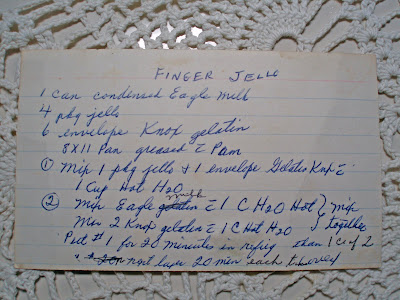 FINGER JELLO
1 Can condensed Eagle Milk
4 pkg jello
6 envelope Knox gelatin
8X11 Pan greased c̄ Pam
① Mix 1 pkg jello + 1 envelope Gelatin Knox c̄
1 Cup Hot H2O
② Mix Eagle Milk c̄ 1 C H2O Hot } Mix
Mix 2 Knox gelatin c̄ 1 C Hot H2O } together
Put #1 for 20 minutes in refrig than 1 C of 2
next layer 20 min each